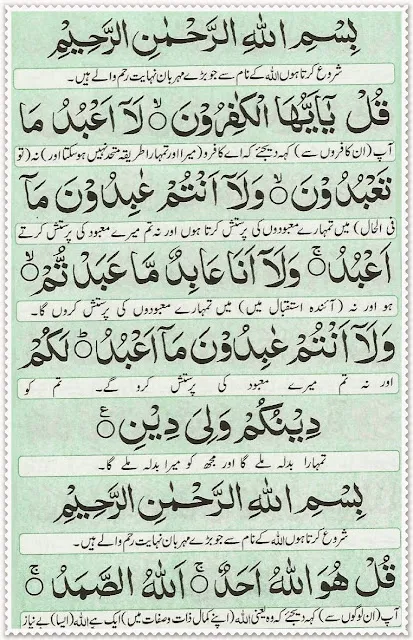 بِسْمِ اللهِ الرَّحْمٰنِ الرَّحِيْمِ
شروع کرتا ہوں اللہ کے نام سے جو بڑے مہربان نہایت رحم والے ہیں۔
قُلْ يٰۤاَيُّهَا الْكٰفِرُوْنَ ۙ لَاۤ اَعْبُدُ مَا
آپ (ان کافروں سے) کہہ دیجئے کہ اے کافرو (میرا اور تمہارا طریقہ متحد نہیں ہو سکتا اور) نہ (تو
تَعْبُدُوْنَ ۙ وَلَاۤ اَنْتُمْ عٰبِدُوْنَ مَاۤ
فی الحال) میں تمہارے معبودوں کی پرستش کرتا ہوں اور نہ تم میرے معبود کی پرستش کرتے
اَعْبُدُ ۚ وَلَاۤ اَنَا عَابِدٌ مَّا عَبَدْتُّمْ ۙ
ہو اور نہ (آئندہ استقبال میں) میں تمہارے معبودوں کی پرستش کروں گا۔
وَلَاۤ اَنْتُمْ عٰبِدُوْنَ مَاۤ اَعْبُدُ ؕ لَكُمْ
اور نہ تم میرے معبود کی پرستش کرو گے۔ تم کو
دِيْنُكُمْ وَلِيَ دِيْنِ ۠ ع
تمہارا بدلہ ملے گا اور مجھ کو میرا بدلہ ملے گا۔
بِسْمِ اللهِ الرَّحْمٰنِ الرَّحِيْمِ
شروع کرتا ہوں اللہ کے نام سے جو بڑے مہربان نہایت رحم والے ہیں۔
قُلْ هُوَ اللهُ اَحَدٌ ۚ اَللهُ الصَّمَدُ ۚ
آپ (ان لوگوں سے) کہہ دیجئے کہ وہ یعنی اللہ (اپنے کمال ذات وصفات میں) ایک ہے اللہ (ایسا) بے نیاز